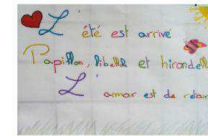 L'été est arrivé
Papillon, libellule et hirondelle
L'amour est de retour